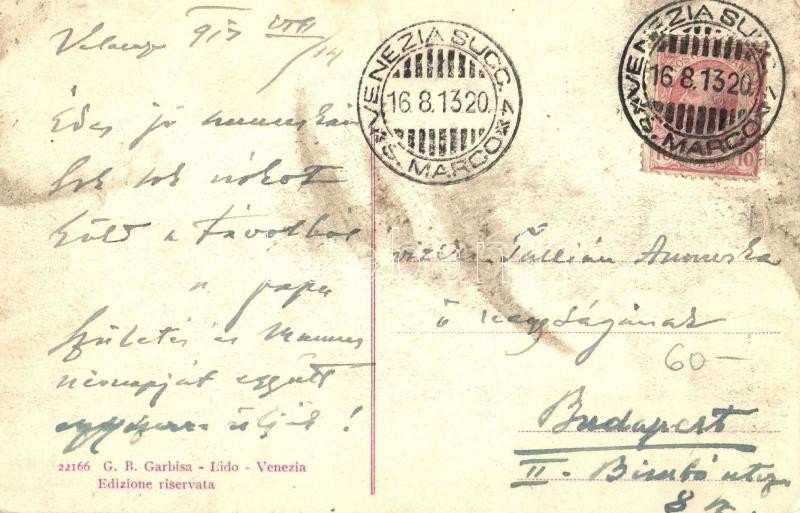 913 VIII/14
Édes jó
sok sok csókot
küld a távolból
a papa
Születés és
névnapját együtt
üljük!
22166 G. B. Garbisa - Lido - Venezia
Edizione riservata
VENEZIA SUCC. 4
16.8.13 20.
S. MARCO
VENEZIA SUCC. 4
16.8.13 20.
S. MARCO
10 10
Tallián Annuska
ő Nagyságának
60-
Budapest
II. Bimbó utca
8